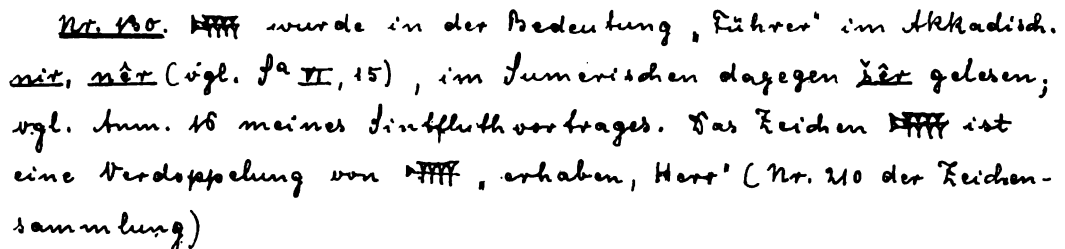 Nr. 130. wurde in der Bedeutung „Führer" im Akkadisch.
nir, nêr (vgl. Sᵃ VI, 15), im Sumerischen dagegen šêr gelesen;
vgl. Anm. 16 meines Sintfluthvortrages. Das Zeichen ist
eine Verdoppelung von „erhaben, Herr" (Nr. 210 der Zeichen-
sammlung)